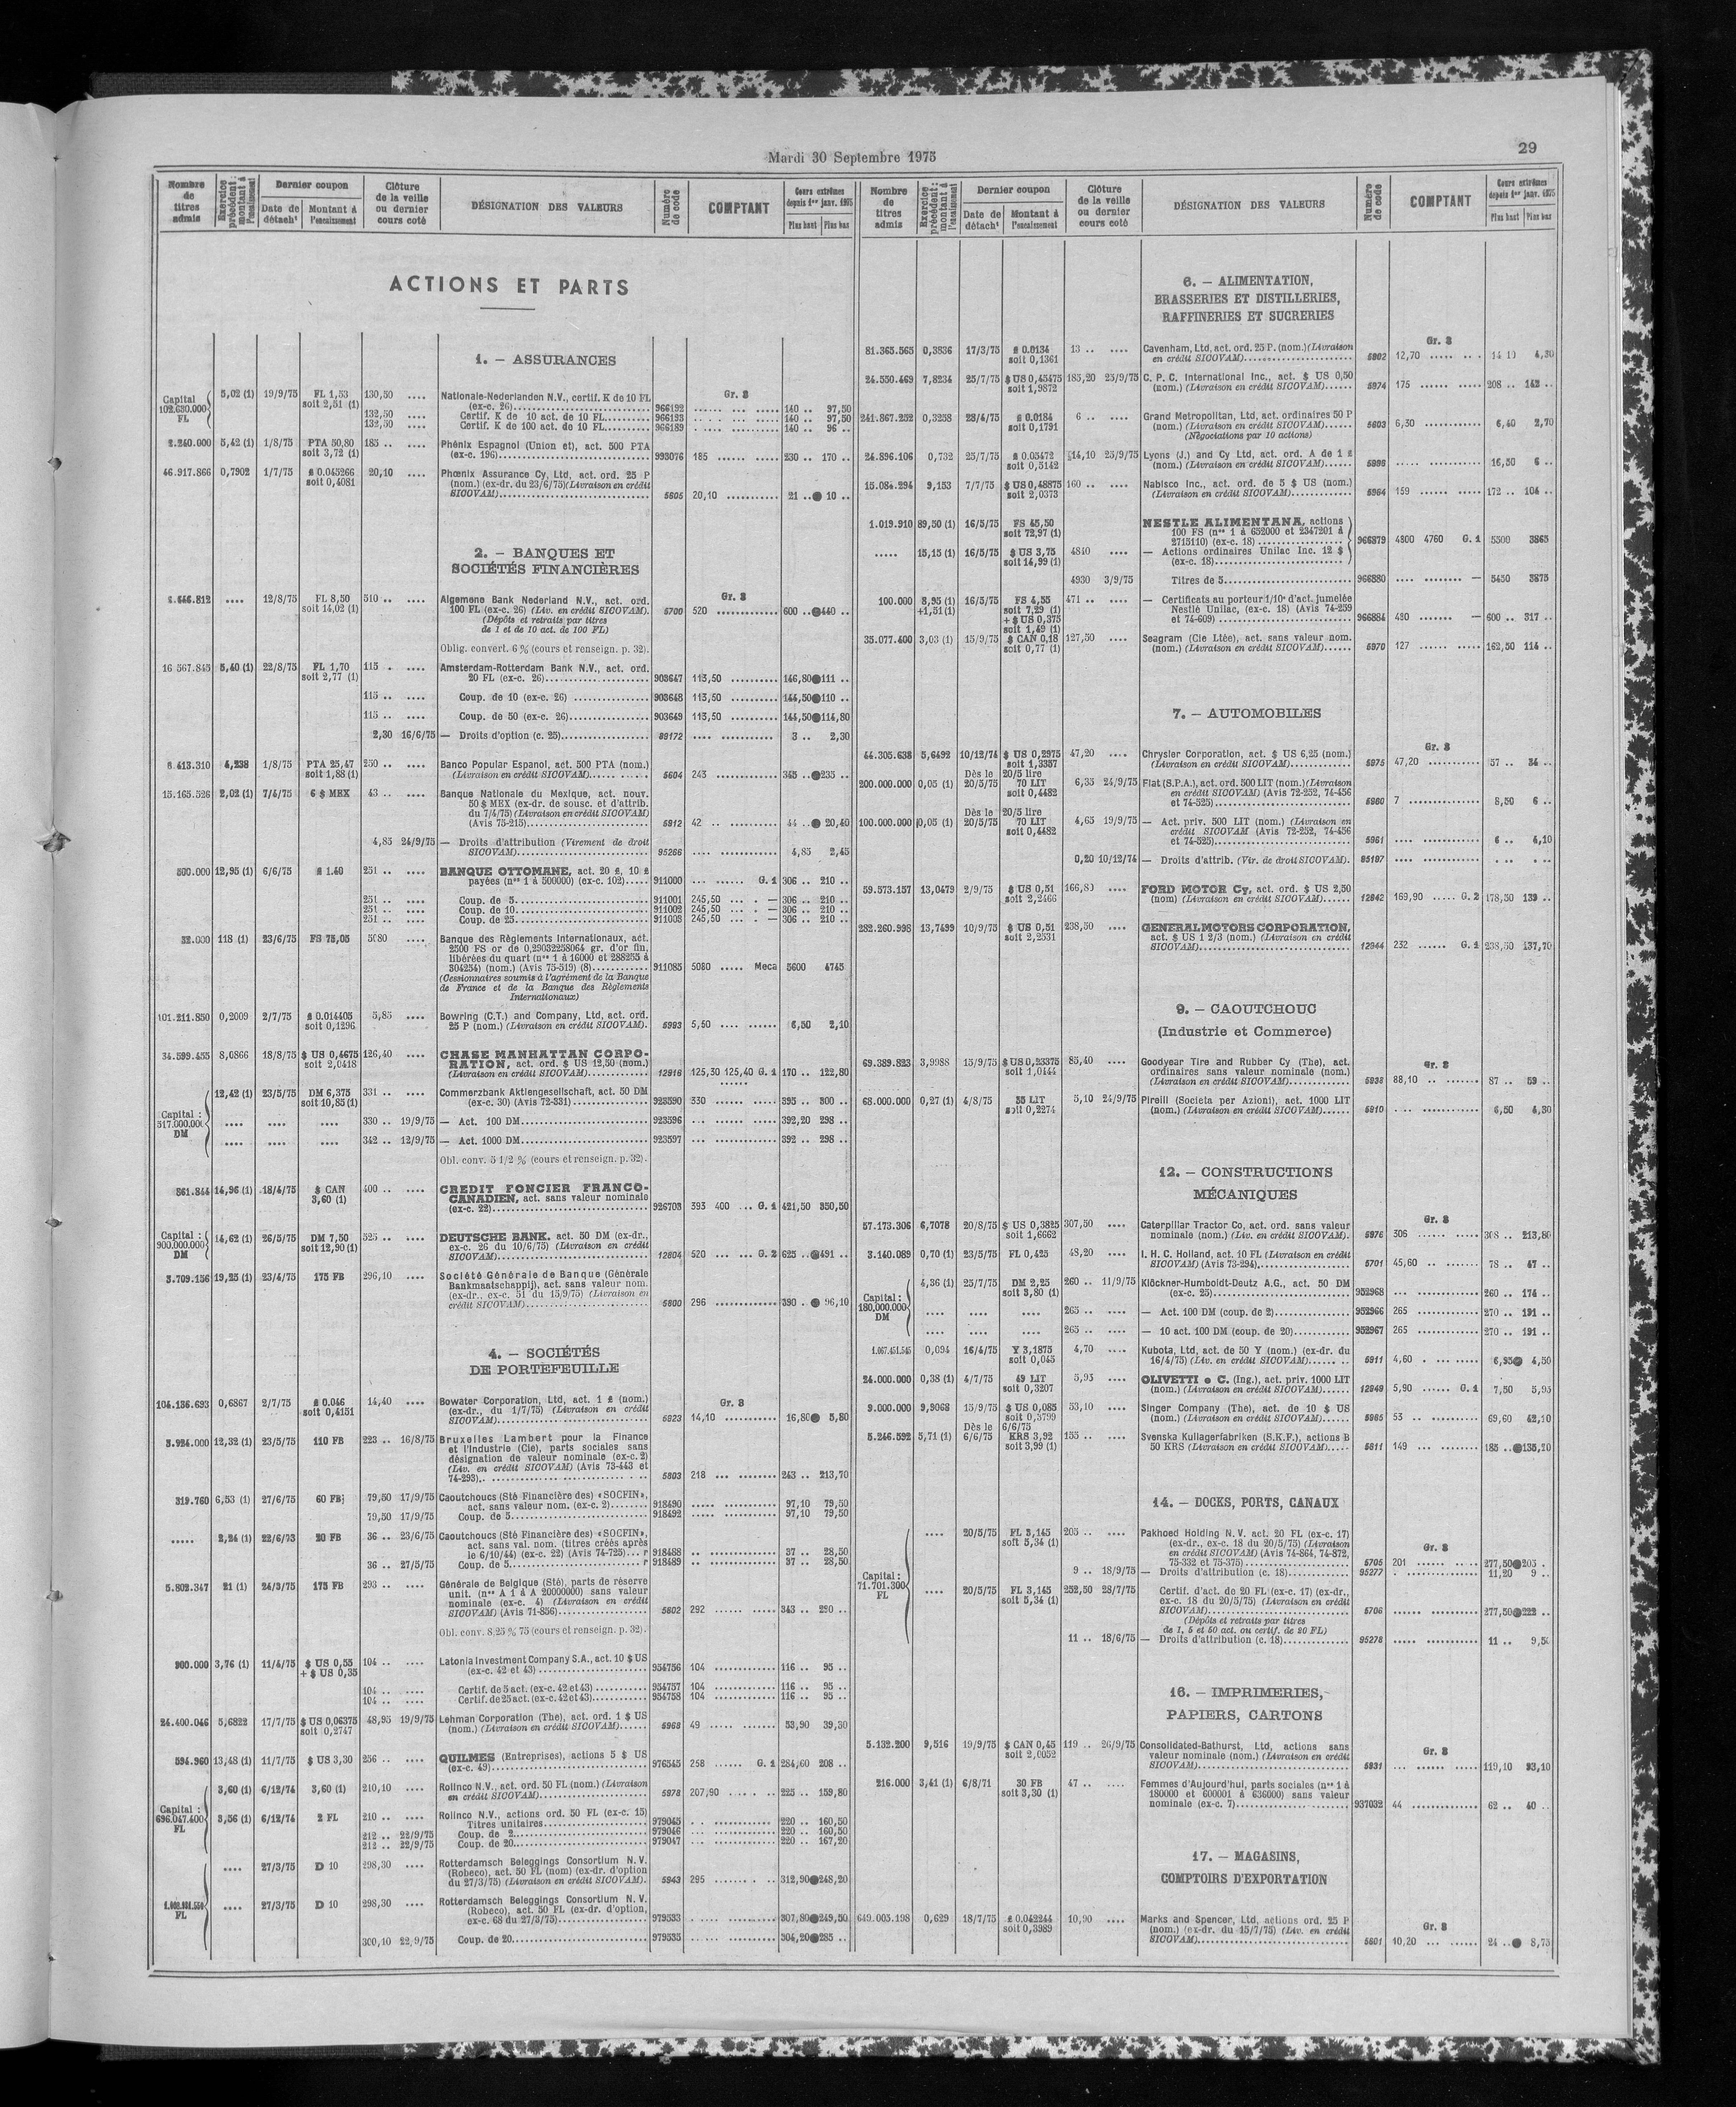 Mardi 30 Septembre 1975
29
Nombre de titres admis
Exercice précédent : montant à l'encaissement
Dernier coupon
Date de détach^t
Montant à l'encaissement
Clôture de la veille ou dernier cours coté
DÉSIGNATION DES VALEURS
Numéro de code
COMPTANT
Cours extrêmes depuis 1er janv. 1975
Plus haut
Plus bas
ACTIONS ET PARTS
1. — ASSURANCES
Gr. 3
Capital 102.630.000 FL
5,02 (1) 19/9/75 FL 1,53 soit 2,51 (1) 130,50 .... Nationale-Nederlanden N.V., certif. K de 10 FL
(ex-c. 26) 966192 140 .. 97,50
132,50 Certif. K de 10 act. de 10 FL 966193 140 .. 97,50
132,50 Certif. K de 100 act. de 10 FL 966189 140 .. 96 ..
2.240.000 5,42 (1) 1/8/75 PTA 50,80 soit 3,72 (1) 185 .. .... Phénix Espagnol (Union et), act. 500 PTA
(ex-c. 196) 993076 185 230 .. 170 ..
46.917.866 0,7902 1/7/75 £ 0.045266 soit 0,4081 20,10 .... Phœnix Assurance Cy, Ltd, act. ord. 25 P
(nom.) (ex-dr. du 23/6/75) (Livraison en crédit
SICOVAM) 5605 20,10 21 .. 10 ..
2. — BANQUES ET
SOCIÉTÉS FINANCIÈRES
Gr. 3
12/8/75 FL 8,50 soit 14,02 (1) 510 .. .... Algemene Bank Nederland N.V., act. ord.
100 FL (ex-c. 26) (Liv. en crédit SICOVAM). 5700 520 600 .. 440 ..
(Dépôts et retraits par titres
de 1 et de 10 act. de 100 FL)
Oblig. convert. 6 % (cours et renseign. p. 32).
16 567.845 5,40 (1) 22/8/75 FL 1,70 soit 2,77 (1) 115 . .... Amsterdam-Rotterdam Bank N.V., act. ord.
20 FL (ex-c. 26) 903647 113,50 146,80 111 ..
115 .. .... Coup. de 10 (ex-c. 26) 903648 113,50 144,50 110 ..
115 .. .... Coup. de 50 (ex-c. 26) 903649 113,50 144,50 114,80
2,30 16/6/75 — Droits d'option (c. 25) 89172 3 .. 2,30
6.413.310 4,238 1/8/75 PTA 25,47 soit 1,88 (1) 250 .. .... Banco Popular Espanol, act. 500 PTA (nom.)
(Livraison en crédit SICOVAM) 5604 243 345 .. 235 ..
15.165.526 2,02 (1) 7/4/75 6 $ MEX 43 .. .... Banque Nationale du Mexique, act. nouv.
50 $ MEX (ex-dr. de sousc. et d'attrib.
du 7/4/75) (Livraison en crédit SICOVAM)
(Avis 75-215) 5912 42 .. 44 .. 20,40
4,85 24/9/75 — Droits d'attribution (Virement de droit
SICOVAM) 95266 4,85 2,45
500.000 12,95 (1) 6/6/75 £ 1.40 251 .. .... BANQUE OTTOMANE, act. 20 £, 10 £
payées (nos 1 à 500000) (ex-c. 102) 911000 G. 1 306 .. 210 ..
251 .. .... Coup. de 5 911001 245,50 — 306 .. 210 ..
251 .. .... Coup. de 10 911002 245,50 — 306 .. 210 ..
251 .. .... Coup. de 25 911003 245,50 — 306 .. 210 ..
32.000 118 (1) 23/6/75 FS 75,05 5080 .... Banque des Règlements Internationaux, act.
2500 FS or de 0,29032258064 gr. d'or fin,
libérées du quart (nos 1 à 16000 et 288255 à
304254) (nom.) (Avis 75-519) (8) 911085 5080 Meca 5600 4745
(Cessionnaires soumis à l'agrément de la Banque
de France et de la Banque des Règlements
Internationaux)
101.211.850 0,2009 2/7/75 £ 0.014405 soit 0,1296 5,85 .... Bowring (C.T.) and Company, Ltd, act. ord.
25 P (nom.) (Livraison en crédit SICOVAM). 5993 5,50 6,50 2,10
34.599.455 8,0866 18/8/75 $ US 0,4675 soit 2,0418 126,40 .... CHASE MANHATTAN CORPO-
RATION, act. ord. $ US 12,50 (nom.)
(Livraison en crédit SICOVAM) 12916 125,30 125,40 G. 1 170 .. 122,80
Capital : 517.000.000 DM
12,42 (1) 23/5/75 DM 6,375 soit 10,85 (1) 331 .. .... Commerzbank Aktiengesellschaft, act. 50 DM
(ex-c. 30) (Avis 72-331) 923590 330 395 .. 300 ..
330 .. 19/9/75 — Act. 100 DM 923596 392,20 298 ..
342 .. 12/9/75 — Act. 1000 DM 923597 392 .. 298 ..
Obl. conv. 5 1/2 % (cours et renseign. p. 32).
361.844 14,96 (1) 18/4/75 $ CAN 3,60 (1) 400 .. .... CREDIT FONCIER FRANCO-
CANADIEN, act. sans valeur nominale
(ex-c. 22) 926703 393 400 ... G. 1 421,50 350,50
Capital : 900.000.000 DM
14,62 (1) 26/5/75 DM 7,50 soit 12,90 (1) 525 .. .... DEUTSCHE BANK, act. 50 DM (ex-dr.,
ex-c. 26 du 10/6/75) (Livraison en crédit
SICOVAM) 12804 520 G. 2 625 .. 491 ..
3.709.156 19,25 (1) 23/4/75 175 FB 296,10 .... Société Générale de Banque (Générale
Bankmaatschappij), act. sans valeur nom.
(ex-dr., ex-c. 51 du 15/9/75) (Livraison en
crédit SICOVAM) 5800 296 390 . 96,10
4. — SOCIÉTÉS
DE PORTEFEUILLE
Gr. 3
104.136.693 0,6867 2/7/75 £ 0.046 soit 0,4151 14,40 .... Bowater Corporation, Ltd, act. 1 £ (nom.)
(ex-dr., du 1/7/75) (Livraison en crédit
SICOVAM) 5923 14,10 16,80 5,80
3.924.000 12,32 (1) 23/5/75 110 FB 223 .. 16/8/75 Bruxelles Lambert pour la Finance
et l'Industrie (Cie), parts sociales sans
désignation de valeur nominale (ex-c. 2)
(Liv. en crédit SICOVAM) (Avis 73-443 et
74-293) 5803 218 243 .. 213,70
319.760 6,53 (1) 27/6/75 60 FB 79,50 17/9/75 Caoutchoucs (Sté Financière des) «SOCFIN»,
act. sans valeur nom. (ex-c. 2) 918490 97,10 79,50
79,50 17/9/75 Coup. de 5 918492 97,10 79,50
..... 2,24 (1) 22/6/73 20 FB 36 .. 23/6/75 Caoutchoucs (Sté Financière des) «SOCFIN»,
act. sans val. nom. (titres créés après
le 6/10/44) (ex-c. 22) (Avis 74-725) ... r 918488 37 .. 28,50
36 .. 27/5/75 Coup. de 5 r 918489 37 .. 28,50
5.802.347 21 (1) 24/3/75 175 FB 293 .. .... Générale de Belgique (Sté), parts de réserve
unit. (nos A 1 à A 20000000) sans valeur
nominale (ex-c. 4) (Livraison en crédit
SICOVAM) (Avis 71-856) 5802 292 343 .. 290 ..
Obl. conv. 8,25 % 75 (cours et renseign. p. 32).
900.000 3,76 (1) 11/4/75 $ US 0,55 + $ US 0,35 104 .. .... Latonia Investment Company S.A., act. 10 $ US
(ex-c. 42 et 43) 954756 104 116 .. 95 ..
104 .. .... Certif. de 5 act. (ex-c. 42 et 43) 954757 104 116 .. 95 ..
104 .. .... Certif. de 25 act. (ex-c. 42 et 43) 954758 104 116 .. 95 ..
24.400.046 5,6822 17/7/75 $ US 0,06375 soit 0,2747 48,95 19/9/75 Lehman Corporation (The), act. ord. 1 $ US
(nom.) (Livraison en crédit SICOVAM) 5968 49 53,90 39,30
594.960 13,48 (1) 11/7/75 $ US 3,30 256 .. .... QUILMES (Entreprises), actions 5 $ US
(ex-c. 49) 976545 258 G. 1 284,60 208 ..
Capital : 696.047.400 FL
3,60 (1) 6/12/74 3,60 (1) 210,10 .... Rolinco N.V., act. ord. 50 FL (nom.) (Livraison
en crédit SICOVAM) 5978 207,90 225 .. 159,80
3,56 (1) 6/12/74 2 FL 210 .. .... Rolinco N.V., actions ord. 50 FL (ex-c. 15)
Titres unitaires 979045 220 .. 160,50
212 .. 22/9/75 Coup. de 2 979046 220 .. 160,50
212 .. 22/9/75 Coup. de 20 979047 220 .. 167,20
.... 27/3/75 D 10 298,30 .... Rotterdamsch Beleggings Consortium N.V.
(Robeco), act. 50 FL (nom) (ex-dr. d'option
du 27/3/75) (Livraison en crédit SICOVAM). 5943 295 312,90 248,20
FL
.... 27/3/75 D 10 298,30 .... Rotterdamsch Beleggings Consortium N.V.
(Robeco), act. 50 FL (ex-dr. d'option,
ex-c. 68 du 27/3/75) 979533 307,80 249,50
300,10 22/9/75 Coup. de 20 979535 304,20 285 ..
Nombre de titres admis
Exercice précédent : montant à l'encaissement
Dernier coupon
Date de détach^t
Montant à l'encaissement
Clôture de la veille ou dernier cours coté
DÉSIGNATION DES VALEURS
Numéro de code
COMPTANT
Cours extrêmes depuis 1er janv. 1975
Plus haut
Plus bas
6. — ALIMENTATION,
BRASSERIES ET DISTILLERIES,
RAFFINERIES ET SUCRERIES
Gr. 3
81.365.565 0,3836 17/3/75 £ 0.0134 soit 0,1361 13 .. .... Cavenham, Ltd, act. ord. 25 P. (nom.) (Livraison
en crédit SICOVAM) 5902 12,70 14 10 4,30
24.550.469 7,8234 25/7/75 $ US 0,45475 soit 1,9872 185,20 25/9/75 C. P. C. International Inc., act. $ US 0,50
(nom.) (Livraison en crédit SICOVAM) 5974 175 208 .. 142 ..
241.867.252 0,3258 28/4/75 £ 0.0184 soit 0,1791 6 .. .... Grand Metropolitan, Ltd, act. ordinaires 50 P
(nom.) (Livraison en crédit SICOVAM) 5603 6,30 6,40 2,70
(Négociations par 10 actions)
24.896.106 0,732 25/7/75 £ 0.05472 soit 0,5142 14,10 25/9/75 Lyons (J.) and Cy Ltd, act. ord. A de 1 £
(nom.) (Livraison en crédit SICOVAM) 16,50 6 ..
15.084.294 9,153 7/7/75 $ US 0,48875 soit 2,0373 160 .. .... Nabisco Inc., act. ord. de 5 $ US (nom.)
(Livraison en crédit SICOVAM) 5964 159 172 .. 104 ..
1.019.910 89,50 (1) 16/5/75 FS 45,50 soit 72,97 (1) NESTLE ALIMENTANA, actions
100 FS (nos 1 à 652000 et 2347201 à
2715110) (ex-c. 18) 966879 4800 4760 G. 1 5500 3865
..... 15,15 (1) 16/5/75 $ US 3,75 soit 14,99 (1) 4840 .... — Actions ordinaires Unilac Inc. 12 $
(ex-c. 18)
4930 3/9/75 Titres de 5 966880 — 5450 3875
100.000 8,95 (1) +1,51 (1) 16/5/75 FS 4,55 soit 7,29 (1) + $ US 0,375 soit 1,49 (1) 471 .. .... — Certificats au porteur 1/10e d'act. jumelée
Nestlé Unilac, (ex-c. 18) (Avis 74-259
et 74-609) 966884 480 — 600 .. 317 ..
35.077.400 3,03 (1) 15/9/75 $ CAN 0,18 soit 0,77 (1) 127,50 .... Seagram (Cie Ltée), act. sans valeur nom.
(nom.) (Livraison en crédit SICOVAM) 5970 127 162,50 114 ..
7. — AUTOMOBILES
Gr. 3
44.305.638 5,6492 10/12/74 $ US 0,2975 soit 1,3357 47,20 .... Chrysler Corporation, act. $ US 6,25 (nom.)
(Livraison en crédit SICOVAM) 5975 47,20 57 .. 34 ..
200.000.000 0,05 (1) Dès le 20/5/75 20/5 lire 70 LIT soit 0,4482 6,35 24/9/75 Fiat (S.P.A.), act. ord. 500 LIT (nom.) (Livraison
en crédit SICOVAM) (Avis 72-252, 74-456
et 74-525) 5960 7 8,50 6 ..
100.000.000 0,05 (1) Dès le 20/5/75 20/5 lire 70 LIT soit 0,4482 4,65 19/9/75 — Act. priv. 500 LIT (nom.) (Livraison en
crédit SICOVAM (Avis 72-252, 74-456
et 74-525) 5961 6 .. 4,10
0,20 10/12/74 — Droits d'attrib. (Vir. de droit SICOVAM). 85197
59.573.157 13,0479 2/9/75 $ US 0,51 soit 2,2466 166,80 .... FORD MOTOR Cy, act. ord. $ US 2,50
(nom) (Livraison en crédit SICOVAM) 12842 169,90 G. 2 178,50 139 ..
282.260.998 13,7499 10/9/75 $ US 0,51 soit 2,2531 238,50 .... GENERAL MOTORS CORPORATION,
act. $ US 1 2/3 (nom.) (Livraison en crédit
SICOVAM) 12944 232 G. 1 238,50 137,70
9. — CAOUTCHOUC
(Industrie et Commerce)
Gr. 3
69.389.823 3,9988 15/9/75 $ US 0,23375 soit 1,0144 85,40 .... Goodyear Tire and Rubber Cy (The), act.
ordinaires sans valeur nominale (nom.)
(Livraison en crédit SICOVAM) 5938 88,10 87 .. 59 ..
68.000.000 0,27 (1) 4/8/75 35 LIT soit 0,2274 5,10 24/9/75 Pirelli (Societa per Azioni), act. 1000 LIT
(nom.) (Livraison en crédit SICOVAM) 5910 6,50 4,30
12. — CONSTRUCTIONS
MÉCANIQUES
Gr. 3
57.173.306 6,7078 20/8/75 $ US 0,3825 soit 1,6662 307,50 .... Caterpillar Tractor Co, act. ord. sans valeur
nominale (nom.) (Liv. en crédit SICOVAM). 5976 306 308 .. 213,80
3.140.089 0,70 (1) 23/5/75 FL 0,425 48,20 .... I. H. C. Holland, act. 10 FL (Livraison en crédit
SICOVAM) (Avis 73-294) 5701 45,60 78 .. 47 ..
Capital : 180.000.000 DM
4,36 (1) 25/7/75 DM 2,25 soit 3,80 (1) 260 .. 11/9/75 Klöckner-Humboldt-Deutz A.G., act. 50 DM
(ex-c. 25) 952968 260 .. 174 ..
265 .. .... — Act. 100 DM (coup. de 2) 952966 265 270 .. 191 ..
265 .. .... — 10 act. 100 DM (coup. de 20) 952967 265 270 .. 191 ..
0,694 16/4/75 Y 3,1875 soit 0,045 4,70 .... Kubota, Ltd, act. de 50 Y (nom.) (ex-dr. du
16/4/75) (Liv. en crédit SICOVAM) 5911 4,60 6,95 4,50
24.000.000 0,38 (1) 4/7/75 49 LIT soit 0,3207 5,95 .... OLIVETTI e C. (Ing.), act. priv. 1000 LIT
(nom.) (Livraison en crédit SICOVAM) 12949 5,90 G. 1 7,50 5,95
9.000.000 9,9068 15/9/75 $ US 0,085 soit 0,3799 53,10 .... Singer Company (The), act. de 10 $ US
(nom.) (Livraison en crédit SICOVAM) 5965 53 .. 69,60 42,10
5.246.592 5,71 (1) Dès le 6/6/75 6/6/75 KRS 3,92 soit 3,99 (1) 155 .. .... Svenska Kullagerfabriken (S.K.F.), actions B
50 KRS (Livraison en crédit SICOVAM) 5811 149 185 .. 135,20
14. — DOCKS, PORTS, CANAUX
Gr. 3
Capital : 71.701.300 FL
.... 20/5/75 FL 3,145 soit 5,34 (1) 205 .. .... Pakhoed Holding N.V. act. 20 FL (ex-c. 17)
(ex-dr., ex-c. 18 du 20/5/75) (Livraison
en crédit SICOVAM) (Avis 74-864, 74-872,
75-332 et 75-375) 5705 201 277,50 203 .
9 .. 18/9/75 — Droits d'attribution (c. 18) 95277 11,20 9 ..
.... 20/5/75 FL 3,145 soit 5,34 (1) 252,50 28/7/75 Certif. d'act. de 20 FL (ex-c. 17) (ex-dr.,
ex-c. 18 du 20/5/75) (Livraison en crédit
SICOVAM) 5706 277,50 222 ..
(Dépôts et retraits par titres
de 1, 5 et 50 act. ou certif. de 20 FL)
11 .. 18/6/75 — Droits d'attribution (c. 18) 95278 11 .. 9,50
16. — IMPRIMERIES,
PAPIERS, CARTONS
Gr. 3
5.132.200 9,516 19/9/75 $ CAN 0,45 soit 2,0052 119 .. 26/9/75 Consolidated-Bathurst, Ltd, actions sans
valeur nominale (nom.) (Livraison en crédit
SICOVAM) 5931 119,10 93,10
216.000 3,41 (1) 6/8/71 30 FB soit 3,30 (1) 47 .. .... Femmes d'Aujourd'hui, parts sociales (nos 1 à
180000 et 600001 à 636000) sans valeur
nominale (ex-c. 7) 937032 44 62 .. 40 ..
17. — MAGASINS,
COMPTOIRS D'EXPORTATION
Gr. 3
649.003.198 0,629 18/7/75 £ 0.042244 soit 0,3989 10,90 .... Marks and Spencer, Ltd, actions ord. 25 P
(nom.) (ex-dr. du 15/7/75) (Liv. en crédit
SICOVAM) 5601 10,20 24 .. 8,75